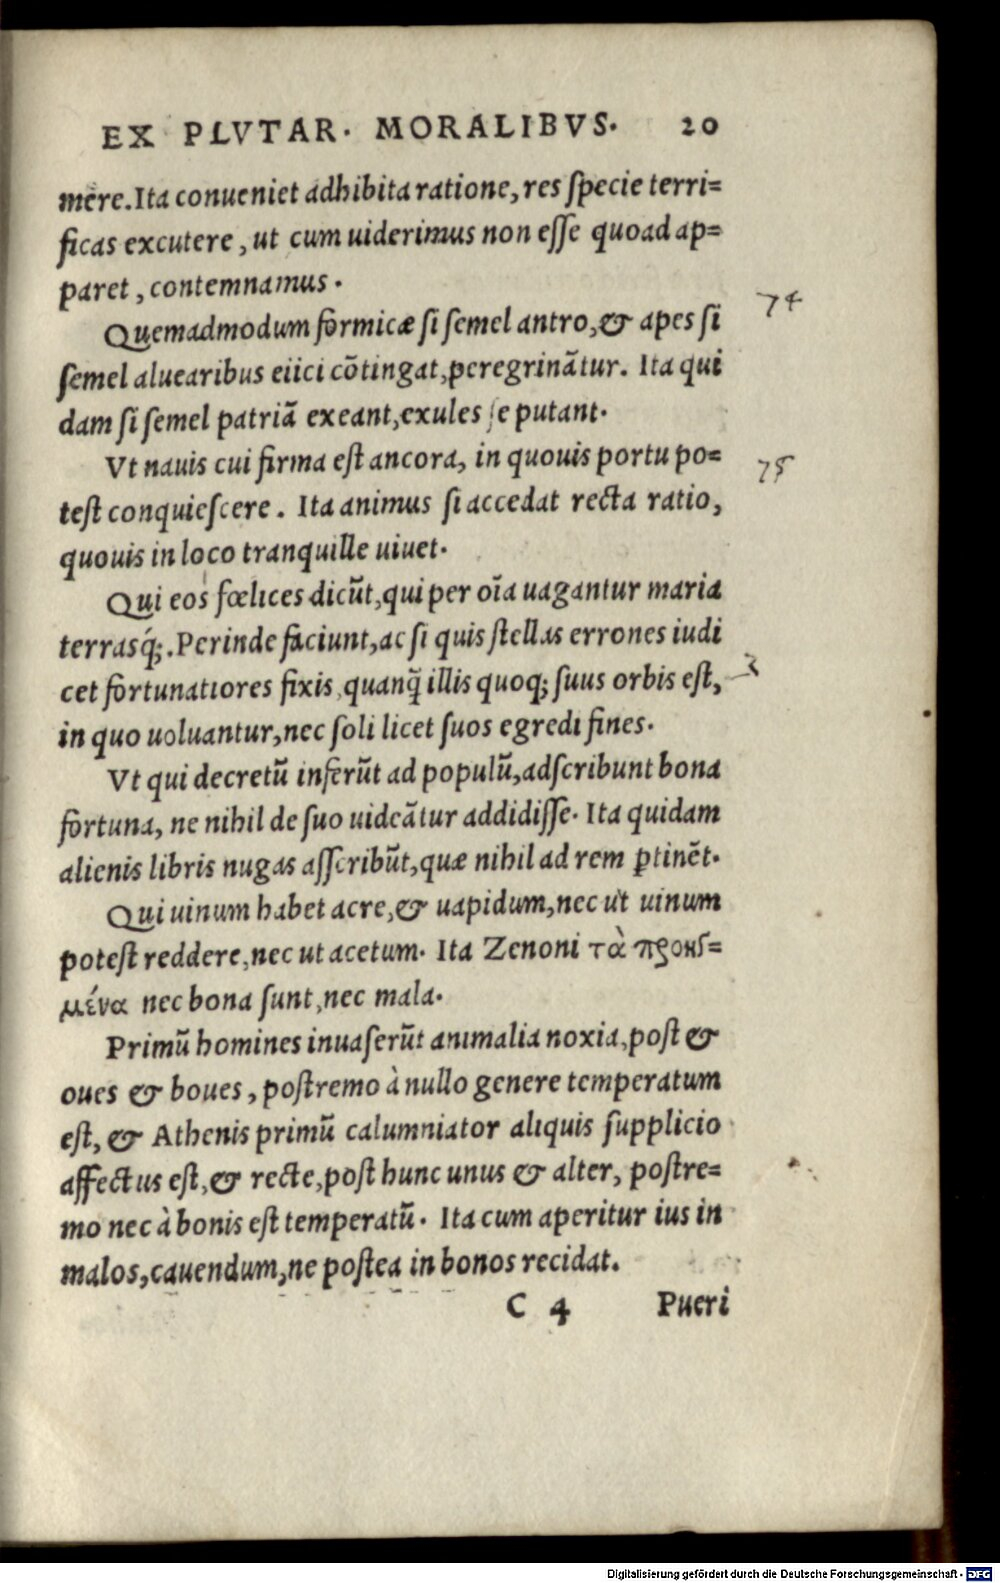 EX PLVTAR. MORALIBVS. 20
mere. Ita conueniet adhibita ratione, res specie terri=
ficas excutere, ut cum uiderimus non esse quoad ap=
paret, contemnamus.
74
Quemadmodum formicæ si semel antro, & apes si
semel aluearibus eiici cõtingat, peregrinãtur. Ita qui
dam si semel patriã exeant, exules se putant.
Vt nauis cui firma est ancora, in quouis portu po=
75
test conquiescere. Ita animus si accedat recta ratio,
quouis in loco tranquille uiuet.
Qui eos fœlices dicũt, qui per oĩa uagantur maria
terrasq́;. Perinde faciunt, ac si quis stellas errones iudi
cet fortunatiores fixis, quanq̃ illis quoq; suus orbis est,
in quo uoluantur, nec soli licet suos egredi fines.
Vt qui decretũ inferũt ad populũ, adscribunt bona
fortuna, ne nihil de suo uideãtur addidisse. Ita quidam
alienis libris nugas asscribũt, quæ nihil ad rem ꝑtinẽt.
Qui uinum habet acre, & uapidum, nec ut uinum
potest reddere, nec ut acetum. Ita Zenoni τὰ προης=
μένα nec bona sunt, nec mala.
Primũ homines inuaserũt animalia noxia, post &
oues & boues, postremo à nullo genere temperatum
est, & Athenis primũ calumniator aliquis supplicio
affectus est, & recte, post hunc unus & alter, postre=
mo nec à bonis est temperatũ. Ita cum aperitur ius in
malos, cauendum, ne postea in bonos recidat.
C 4 Pueri
Digitalisierung gefördert durch die Deutsche Forschungsgemeinschaft - DFG